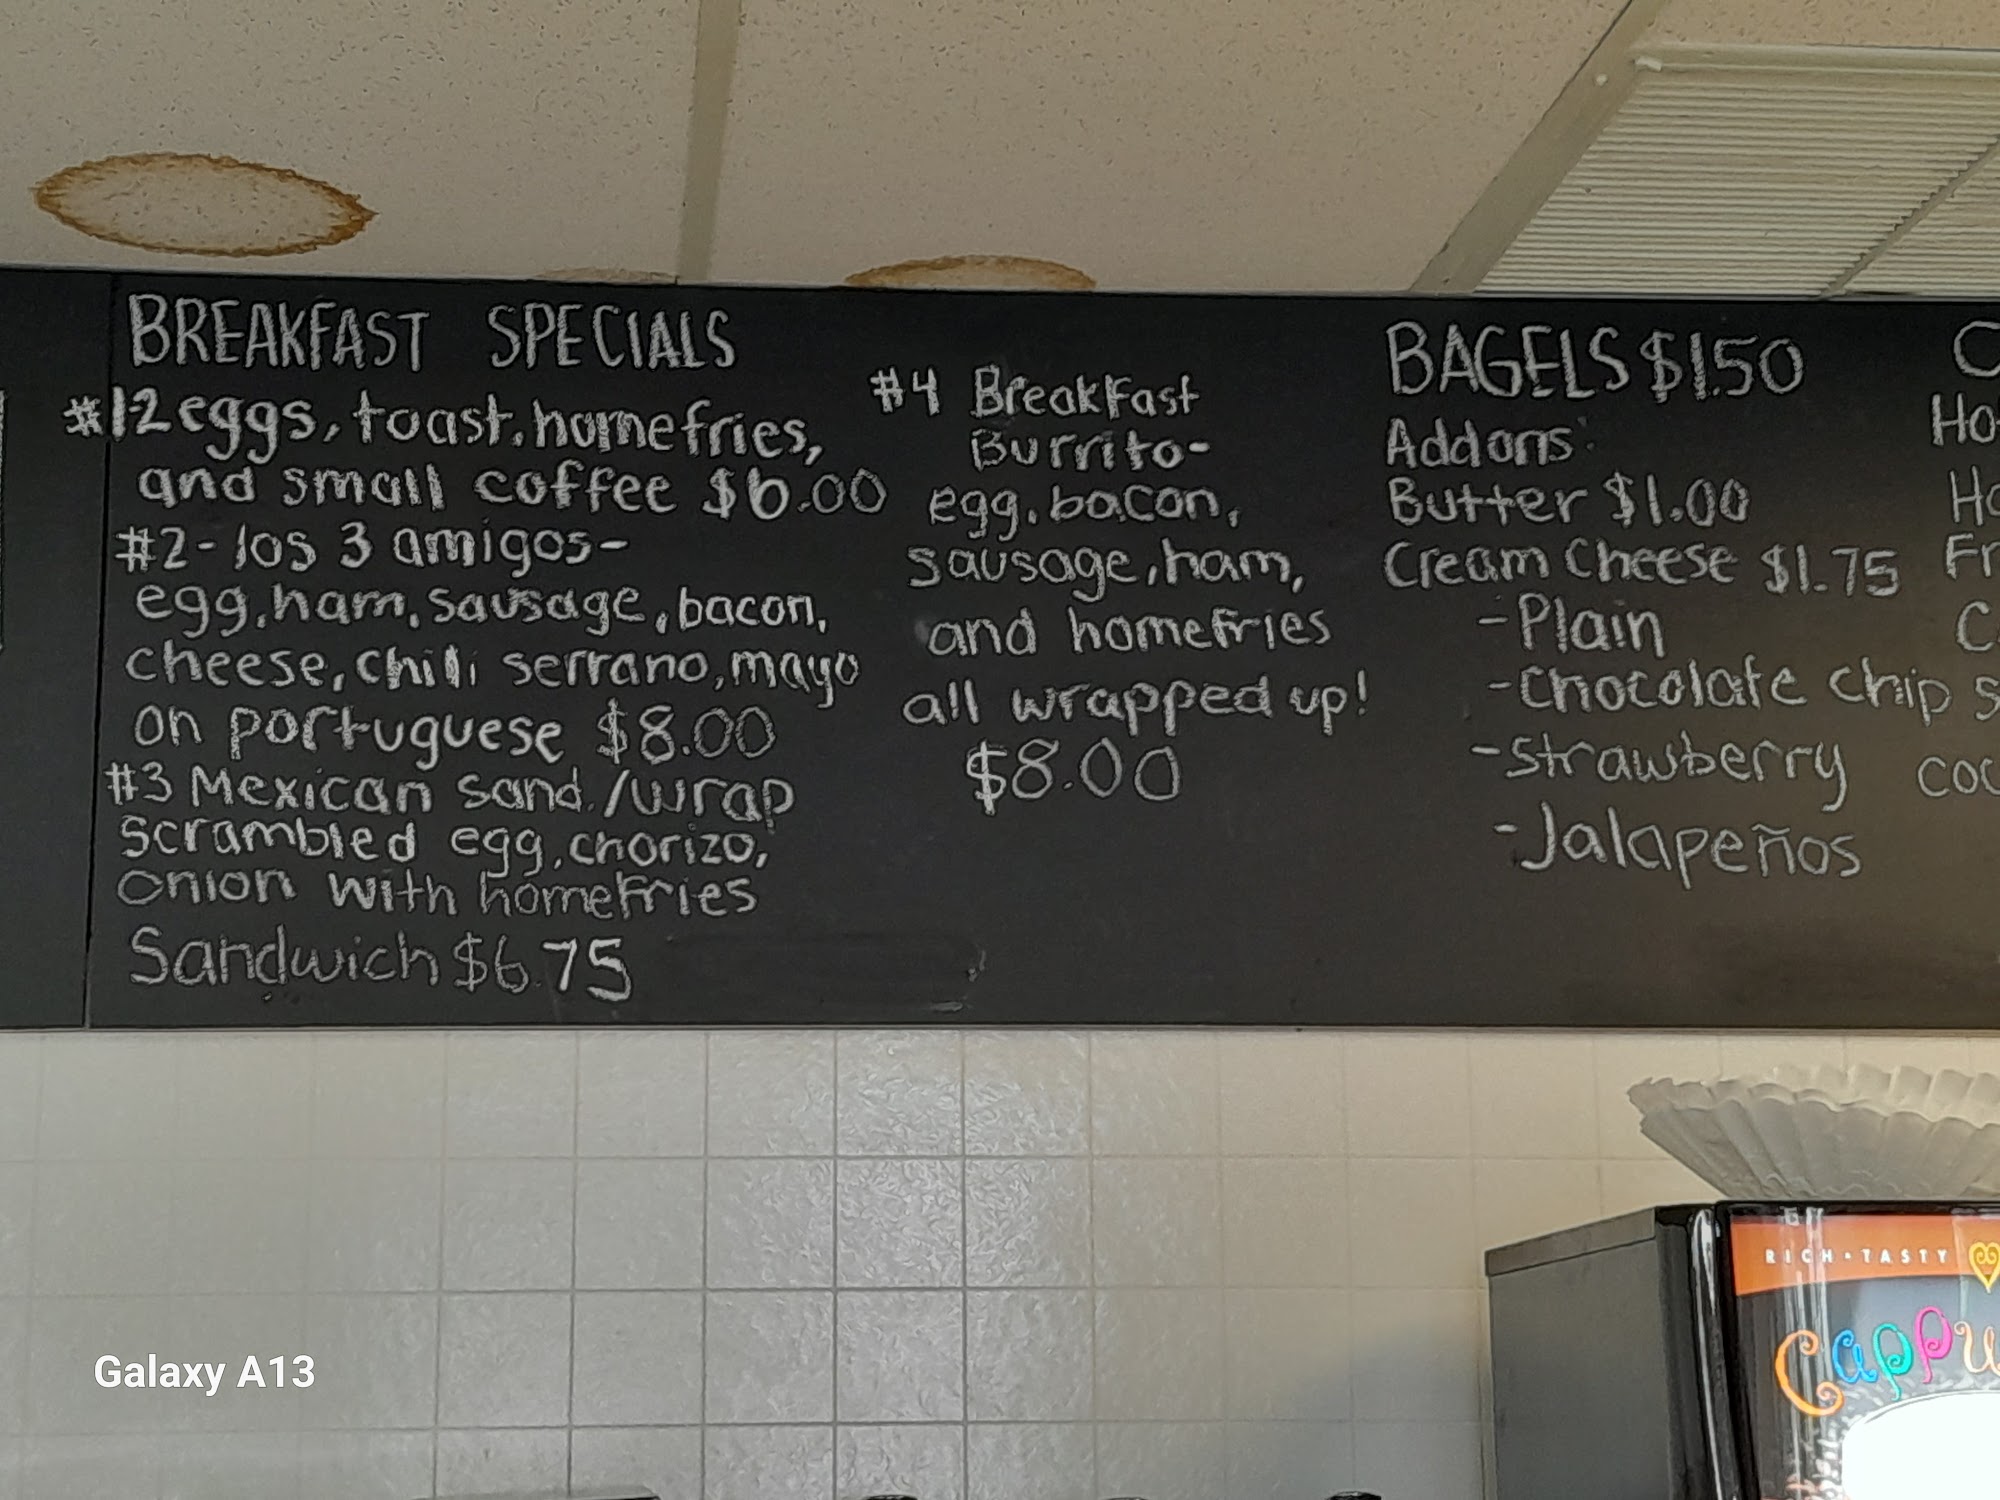 BREAKFAST SPECIALS
#1-2 eggs, toast, homefries,
and small coffee $6.00
#2- los 3 amigos-
egg, ham, sausage, bacon,
cheese, chili serrano, mayo
on portuguese $8.00
#3 Mexican sand./wrap
scrambled egg, chorizo,
onion with homefries
Sandwich $6.75
#4 Breakfast
Burrito-
egg, bacon,
sausage, ham,
and homefries
all wrapped up!
$8.00
BAGELS $1.50
Addons:
Butter $1.00
Cream Cheese $1.75
-Plain
-Chocolate chip
-strawberry
-Jalapeños
RICH • TASTY
Galaxy A13